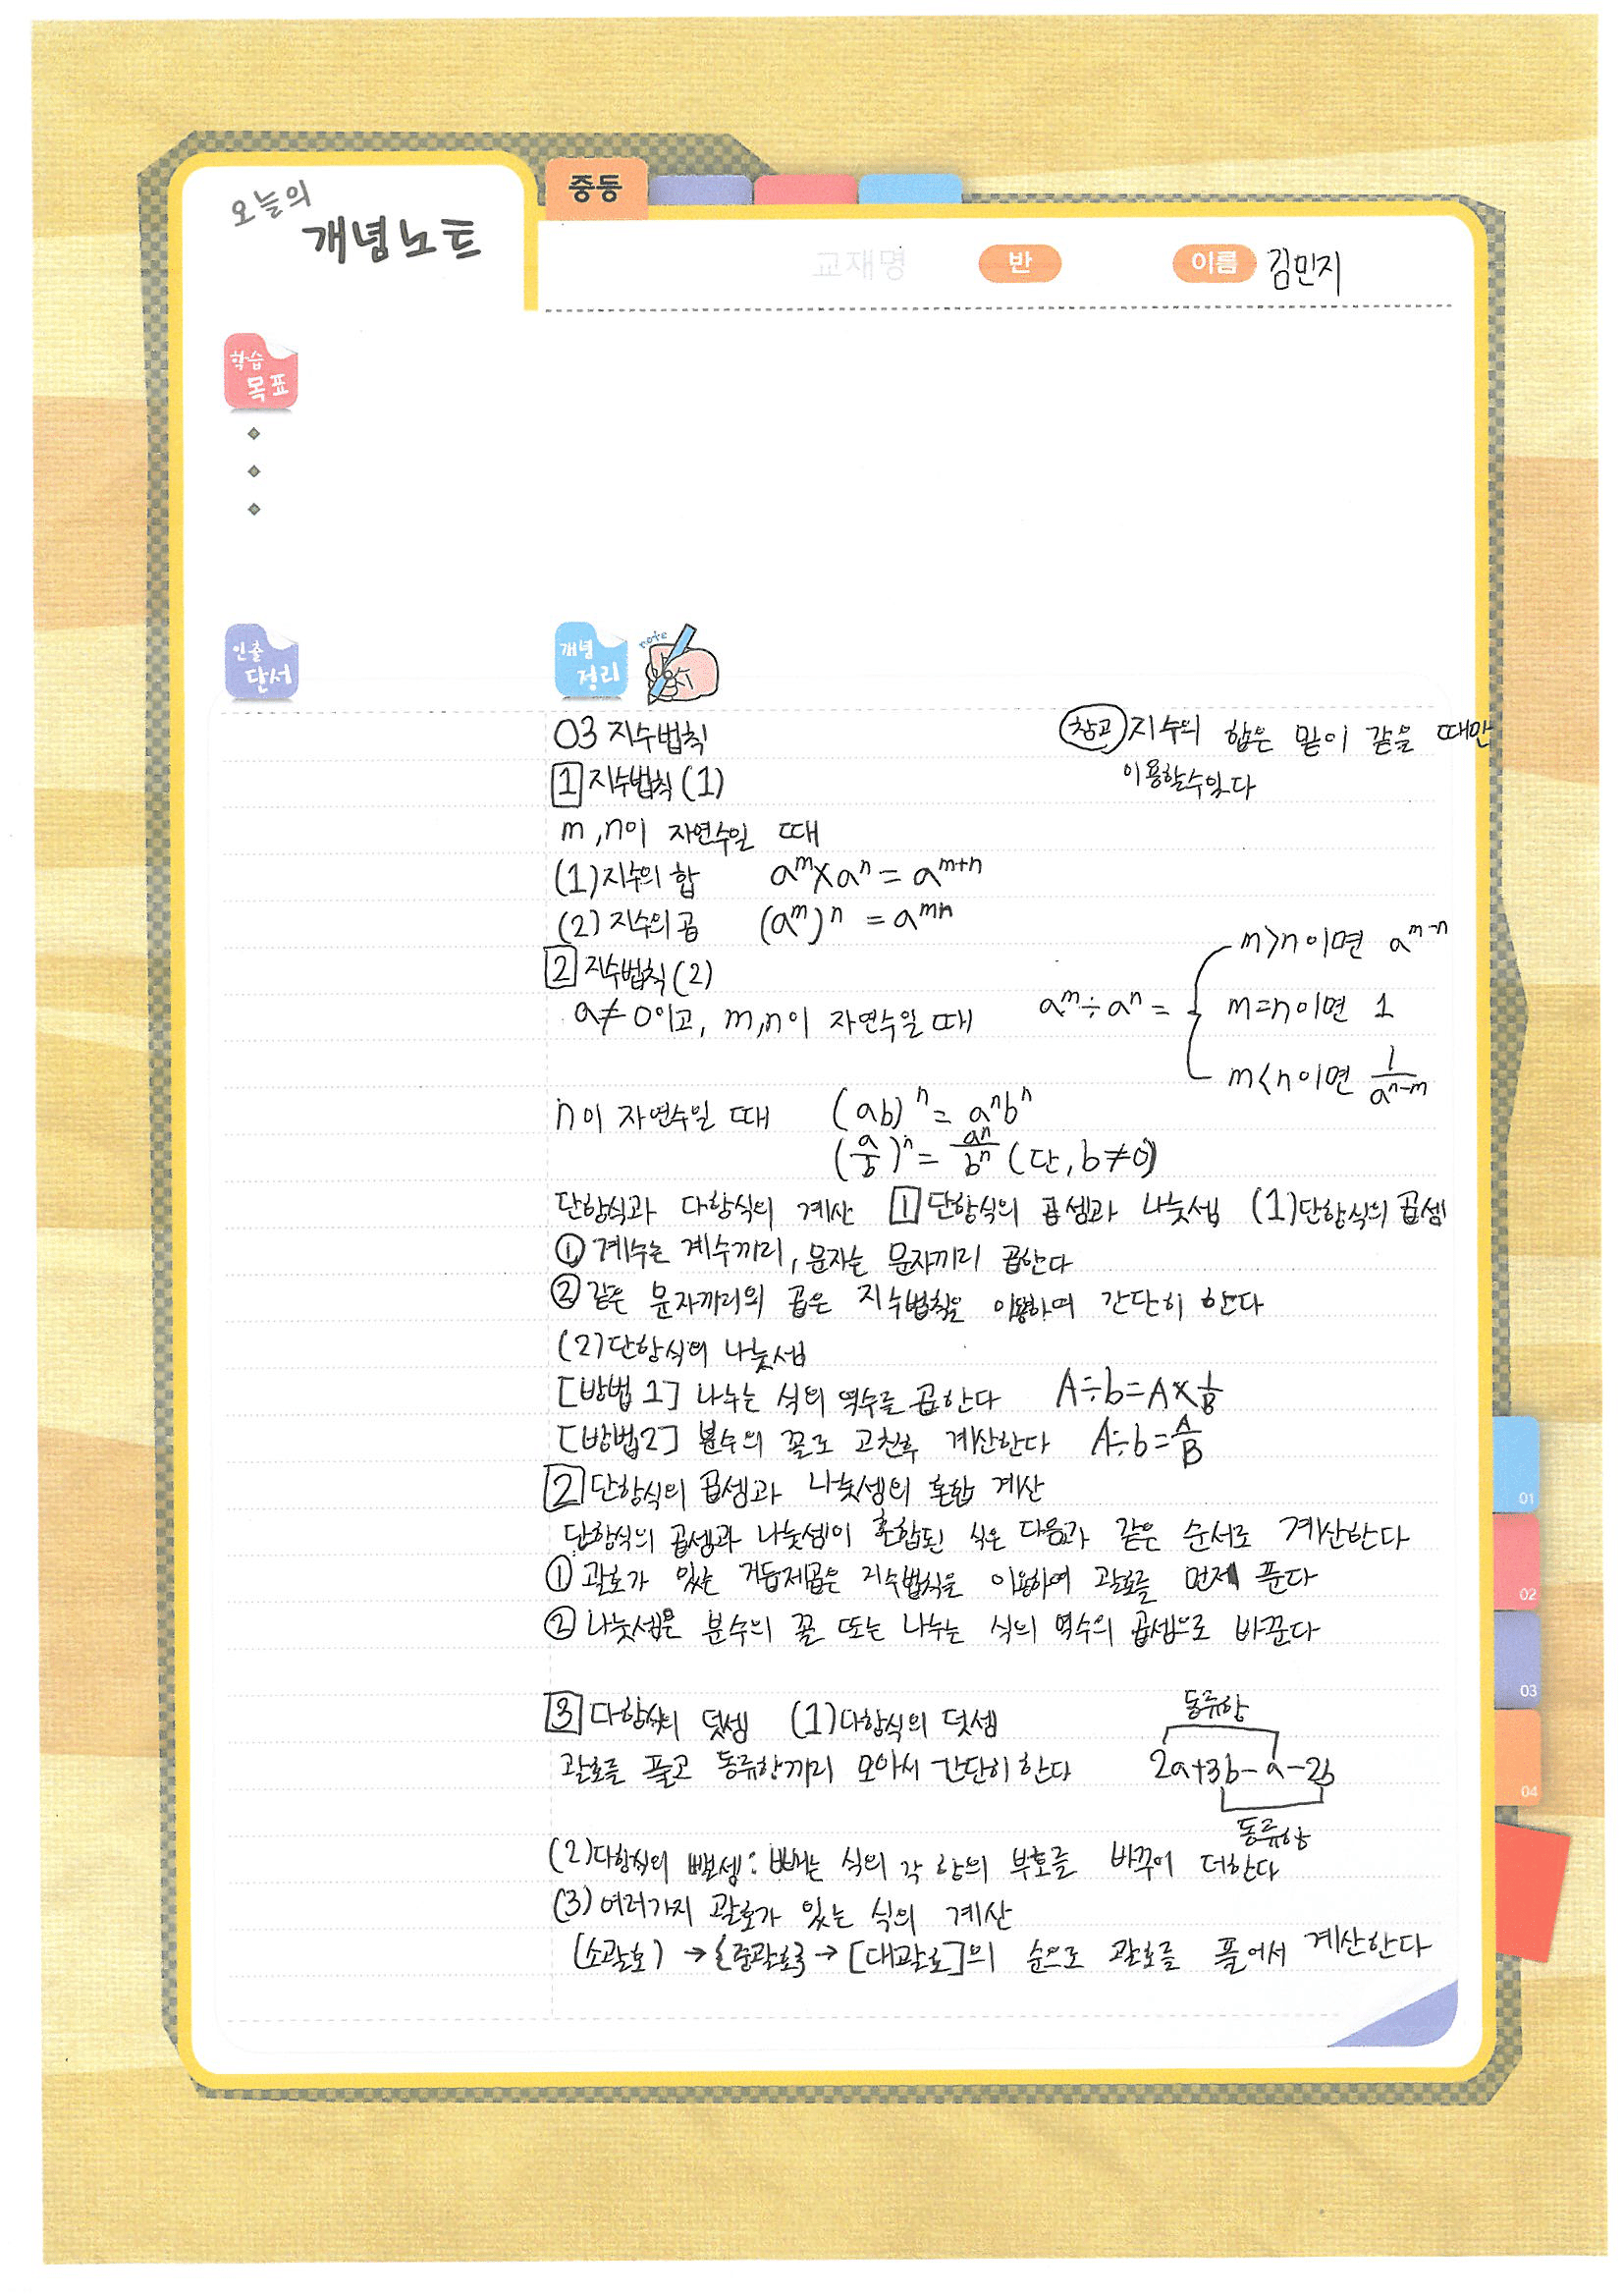 오늘의
개념노트
중등
교재명 반 이름 김민지
학습
목표
인출
단서
개념
정리
note
03 지수법칙
참고 지수의 합은 밑이 같을 때만
이용할수잇다
1 지수법칙(1)
m, n이 자연수일 때
(1) 지수의 합 a^m×a^n = a^{m+n}
(2) 지수의 곱 (a^m)^n = a^{mn}
2 지수법칙(2)
a≠0이고, m,n이 자연수일 때 a^m÷a^n =
m>n이면 a^{m-n}
m=n이면 1
m<n이면 1/a^{n-m}
n이 자연수일 때 (ab)^n = a^n b^n
(a/b)^n = a^n/b^n (단, b≠0)
단항식과 다항식의 계산 1 단항식의 곱셈과 나눗셈 (1)단항식의 곱셈
① 계수는 계수끼리, 문자는 문자끼리 곱한다
② 같은 문자끼리의 곱은 지수법칙을 이용하여 간단히 한다
(2)단항식의 나눗셈
[방법 1] 나누는 식의 역수를 곱한다 A÷b=A×1/B
[방법2] 분수의 꼴로 고친후 계산한다 A÷b=A/B
2 단항식의 곱셈과 나눗셈의 혼합 계산
단항식의 곱셈과 나눗셈이 혼합된 식은 다음과 같은 순서로 계산한다
① 괄호가 있는 거듭제곱은 지수법칙을 이용하여 괄호를 먼저 푼다
② 나눗셈은 분수의 꼴 또는 나누는 식의 역수의 곱셈으로 바꾼다
3 다항식의 덧셈 (1)다항식의 덧셈
동류항
괄호를 풀고 동류항끼리 모아서 간단히 한다 2a+3b-a-2b
동류항
(2)다항식의 뺄셈: 빼는 식의 각 항의 부호를 바꾸어 더한다
(3) 여러가지 괄호가 있는 식의 계산
(소괄호) → {중괄호} → [대괄호]의 순으로 괄호를 풀어서 계산한다
01
02
03
04